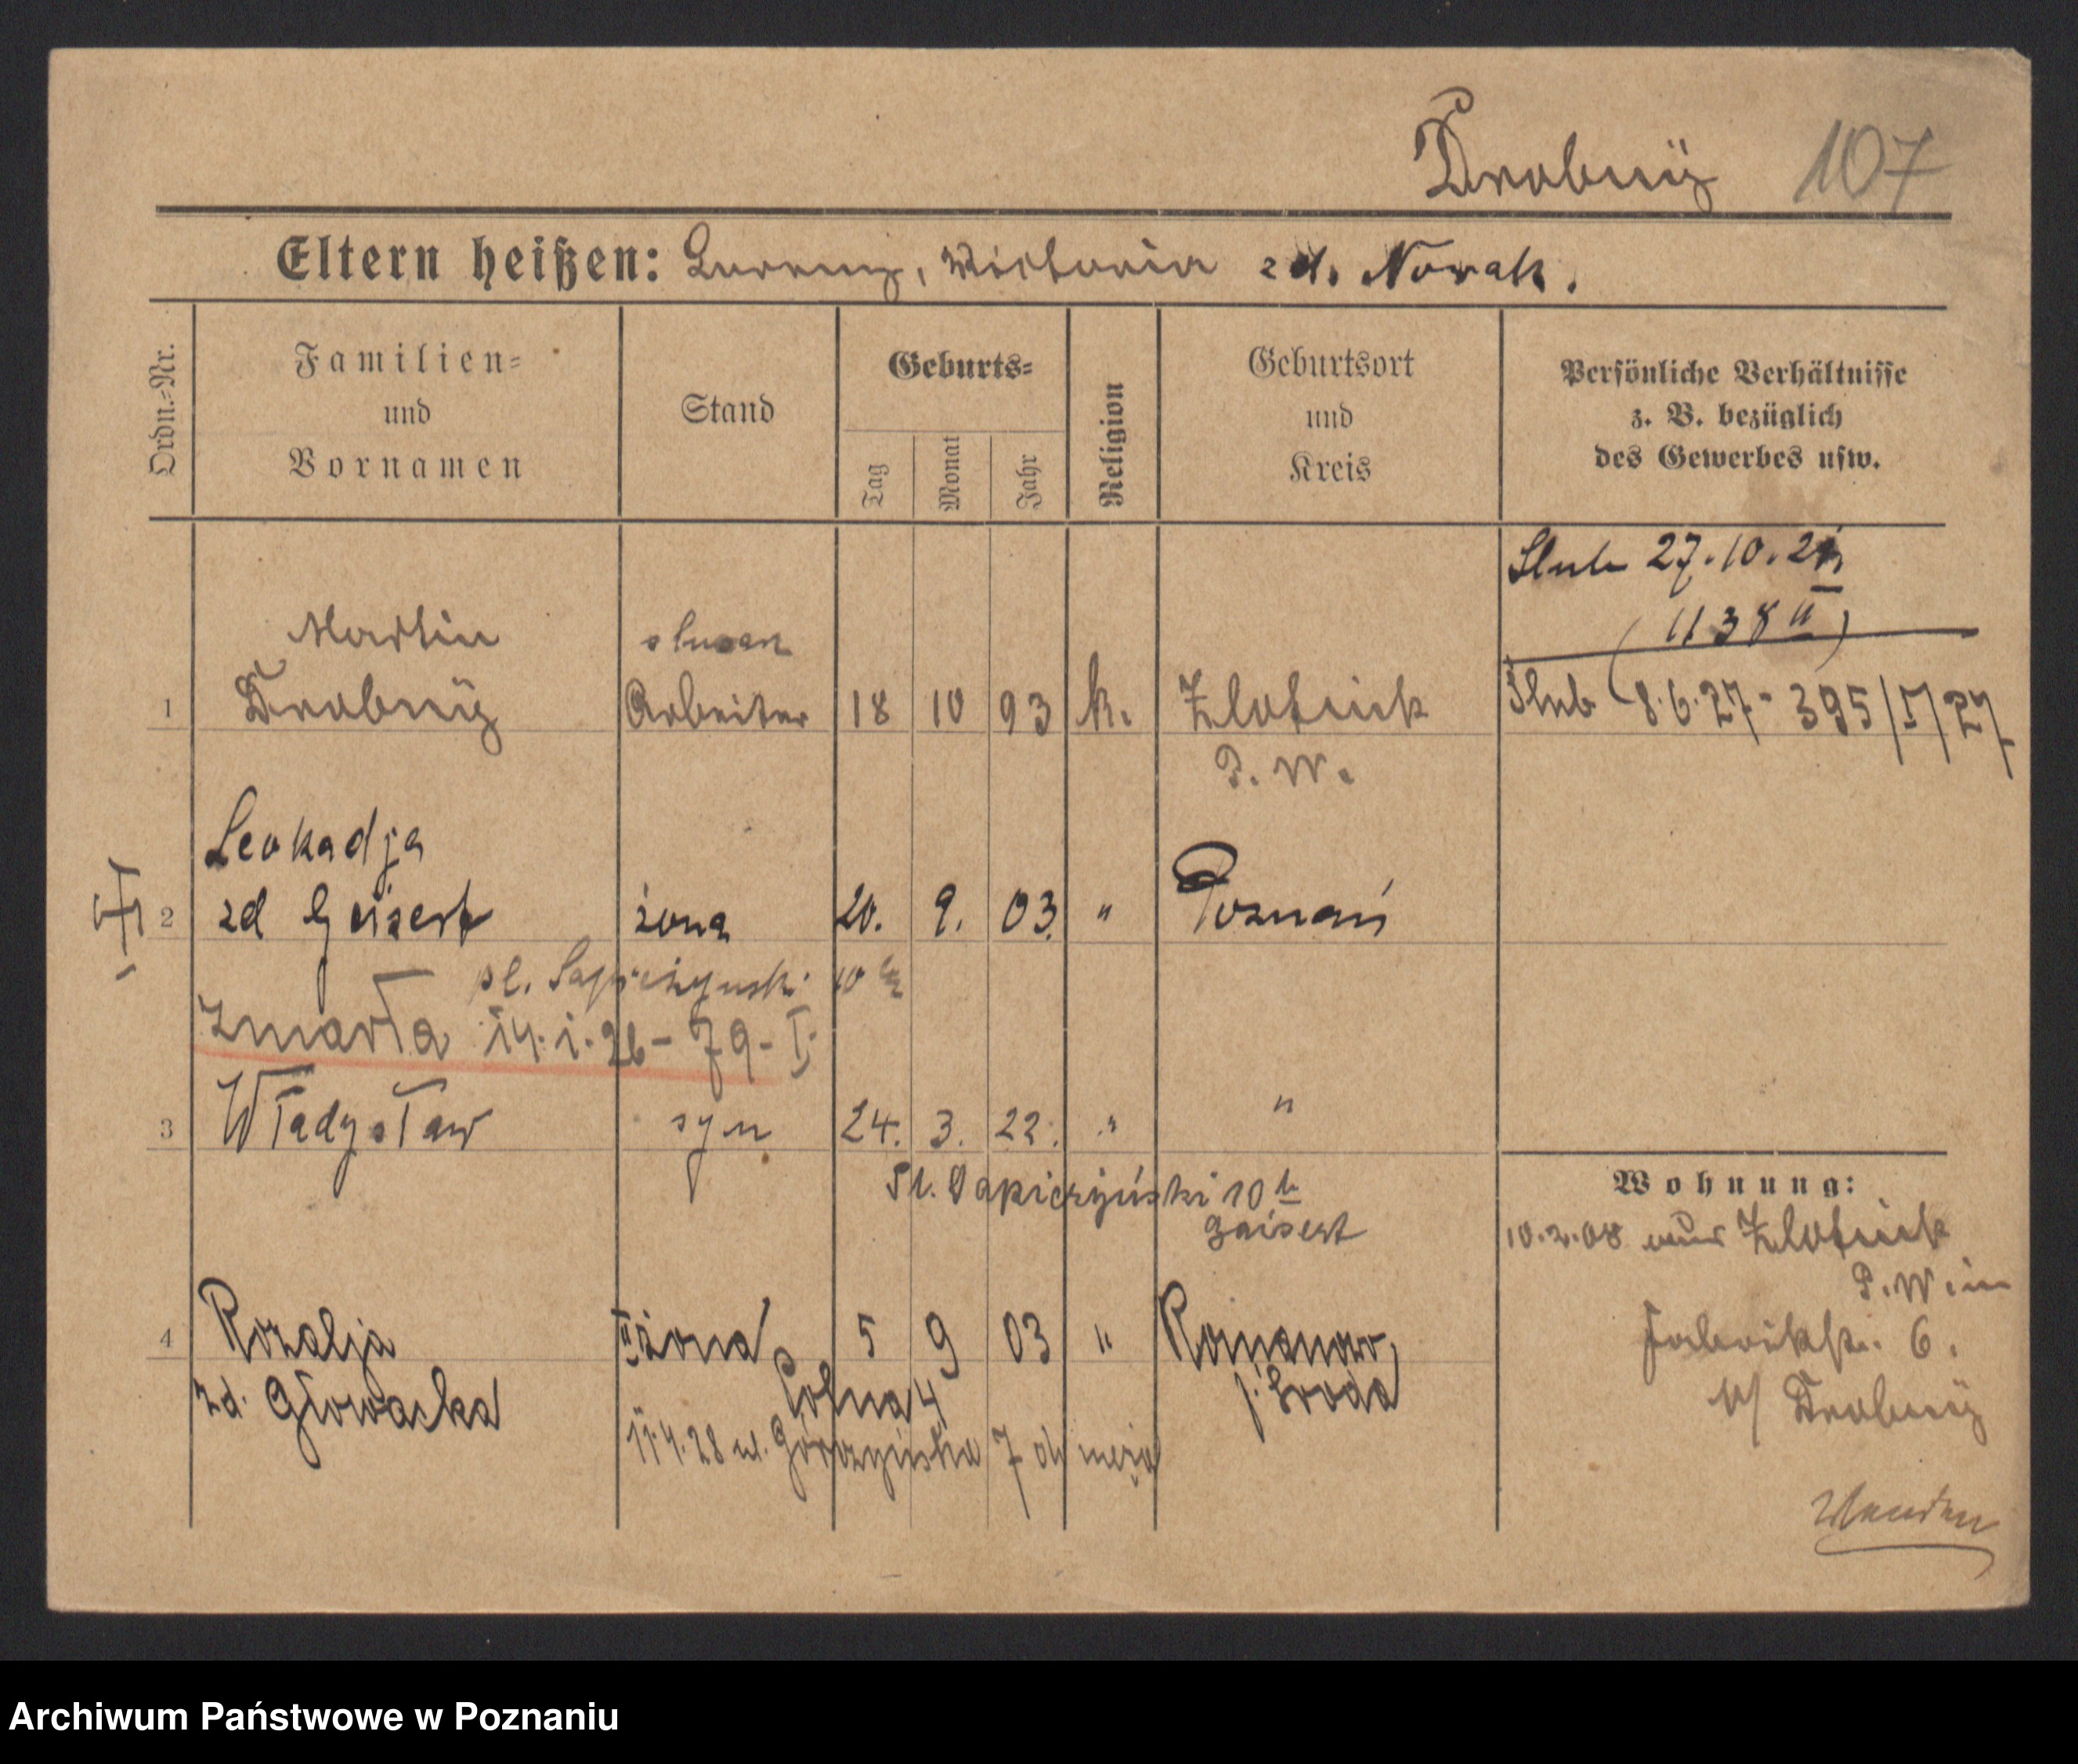 Drobnÿ 107
Eltern heißen: Lorenz, Victoria zd. Nowak.
Ordn.-Nr.
Familien-
und
Vornamen
Stand
Geburts-
Tag
Monat
Jahr
Religion
Geburtsort
und
Kreis
Persönliche Verhältnisse
z. B. bezüglich
des Gewerbes usw.
Slub 27.10.21
(1138 II)
Martin
ślusarz
1 Drobnÿ Arbeiter 18 10 93 k. Zlotnik
Ślub 8.6.27 - 395/I/27
P. W.
Leokadja
2 zd Geisert żona 20. 9. 03. " Poznań
pl. Sapieżyński 10
Zmarła 14.1.26 - 79 - I.
3 Władysław syn 24. 3. 22. " "
Pl. Sapieżyński 10 b
Gaisert
Wohnung:
10.2.08 aus Zlotnik
P. W. in
Fabrikstr. 6.
b/ Drobnÿ
4 Rozalja II żona 5 9 03 " Romanowo,
zd. Głowacka Polna 4 p. Środa
11.4.28 ul. Górczyńska 7